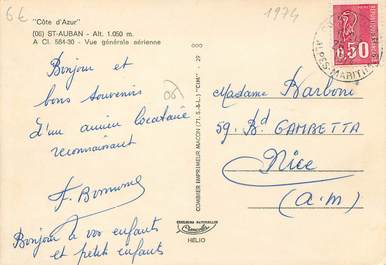 6€
"Côte d'Azur"
(06) ST-AUBAN - Alt. 1.050 m.
A Cl. 584-30 - Vue générale aérienne
Bonjour et
bons souvenirs
d'un ancien locataire
reconnaissant
Bonjour à vos enfants
et petits enfants
06
COMBIER IMPRIMEUR MACON (71.-S.-&-L.) "CIM" - 29
HÉLIO
1974
0,50
ALPES-MARITIMES
Madame Barboni
59. Bd GAMBETTA
Nice
(A.M)